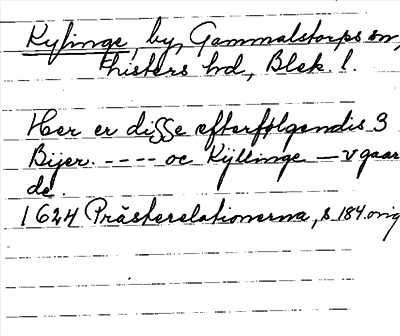 Kylinge, by, Gammalstorps sn,
Listers hd, Blek. l.
Her er disse efterfølgendis 3
Bijer. ---- oc Kÿllinge — v gaar
de.
1624 Prästerelationerna, s 184. orig